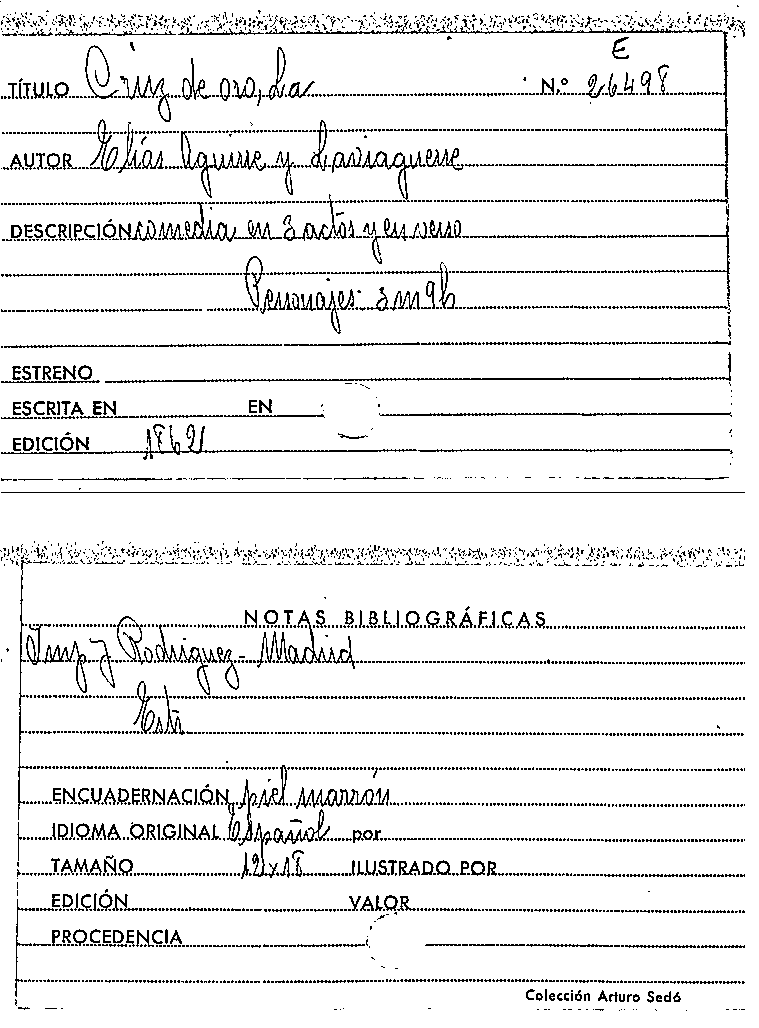 E
TÍTULO Cruz de oro, La N.º 26498
AUTOR Elías Aguirre y Laviaguerre
DESCRIPCIÓN comedia en 3 actos y en verso
Personajes: 3 m 9 h
ESTRENO
ESCRITA EN EN
EDICIÓN 1862
NOTAS BIBLIOGRÁFICAS
Imp J Rodriguez - Madrid
ENCUADERNACIÓN piel marrón
IDIOMA ORIGINAL Español por
TAMAÑO 12x18 ILUSTRADO POR
EDICIÓN VALOR
PROCEDENCIA
Colección Arturo Sedó